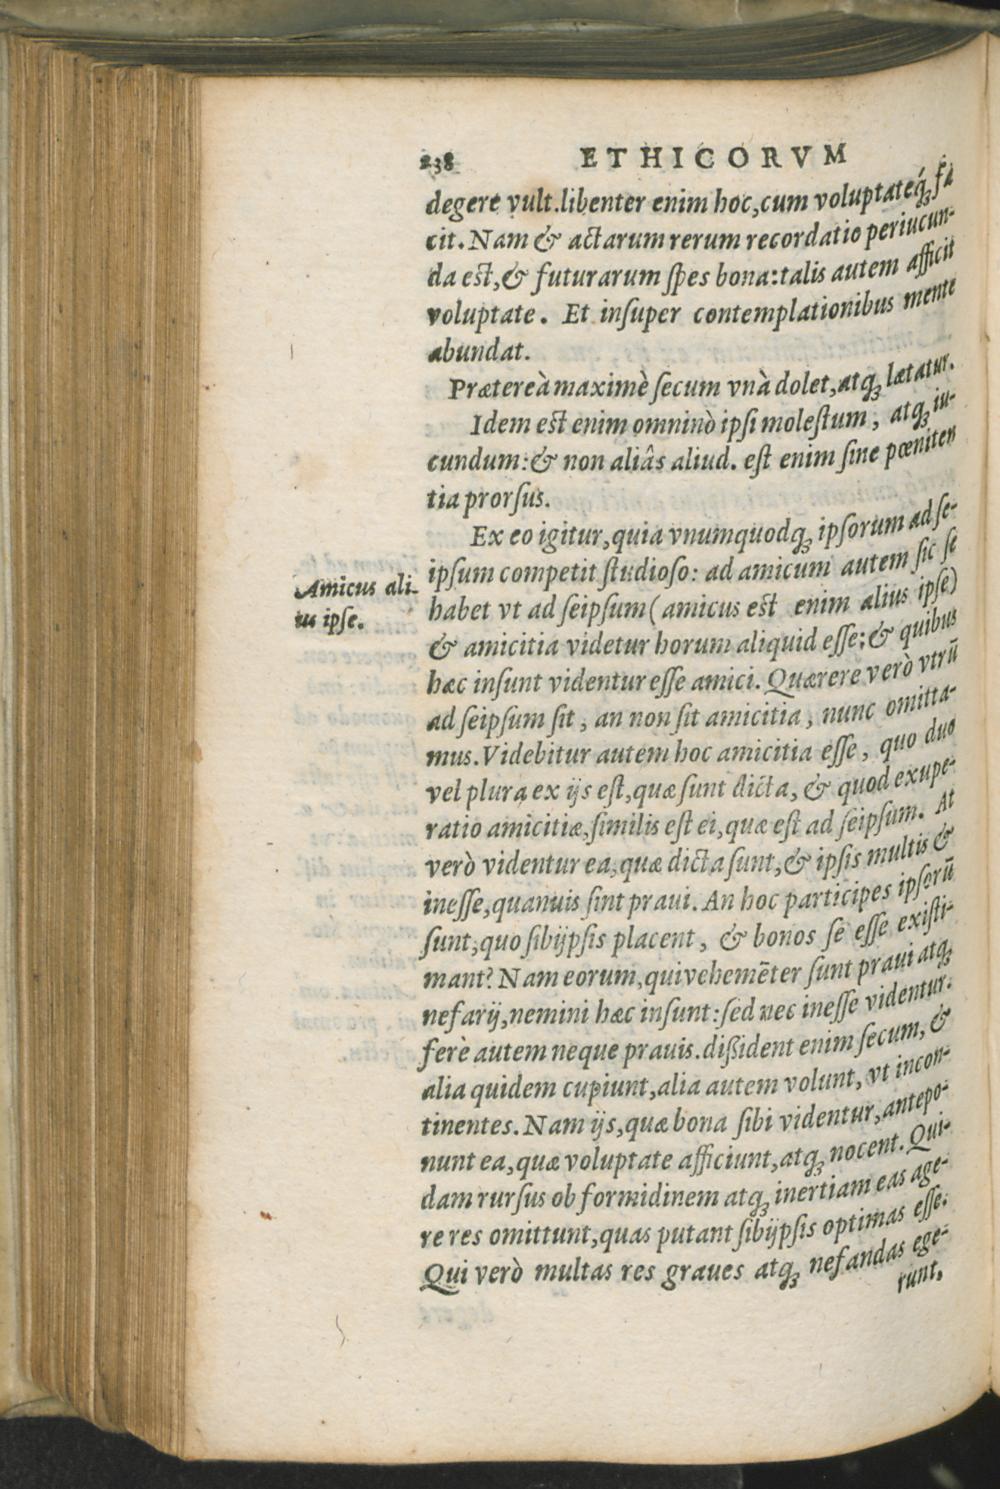 238 ETHICORVM
degere vult.libenter enim hoc,cum voluptateq́ꝫ fa
cit. Nam & actarum rerum recordatio periucun-
da est,& futurarum ſpes bona:talis autem afficit
voluptate. Et inſuper contemplationibus mente
abundat.
Prætereà maximè ſecum vnà dolet,atqꝫ lætatur.
Idem est enim omninò ipſi moleſtum, atqꝫ iu-
cundum:& non aliâs aliud. eſt enim ſine pœniten
tia prorſus.
Ex eo igitur,quia vnumquodqꝫ ipſorum ad ſe-
ipſum competit ſtudioſo: ad amicum autem ſic ſe
Amicus ali-
us ipſe.
habet vt ad ſeipſum (amicus est enim alius ipſe)
& amicitia videtur horum aliquid eſſe:& quibus
hæc inſunt videntur eſſe amici. Quærere verò vtrū
ad ſeipſum ſit, an non ſit amicitia, nunc omitta-
mus. Videbitur autem hoc amicitia eſſe, quo duo
vel plura ex ijs eſt,quæ ſunt dicta, & quod exupe-
ratio amicitiæ,ſimilis eſt ei,quæ eſt ad ſeipſum. At
verò videntur ea,quæ dicta ſunt,& ipſis multis &
ineſſe,quanuis ſint praui. An hoc participes ipſorū
ſunt,quo ſibijpſis placent, & bonos ſe eſſe exiſti-
mant? Nam eorum,qui vehemēter ſunt praui atqꝫ
nefarij,nemini hæc inſunt:ſed nec ineſſe videntur.
ferè autem neque prauis.diſsident enim ſecum, &
alia quidem cupiunt,alia autem volunt, vt incon-
tinentes. Nam ijs,quæ bona ſibi videntur,antepo-
nunt ea,quæ voluptate afficiunt,atqꝫ nocent. Qui-
dam rurſus ob formidinem atqꝫ inertiam eas age-
re res omittunt,quas putant ſibijpſis optimas eſſe.
Qui verò multas res graues atqꝫ nefandas ege-
runt,